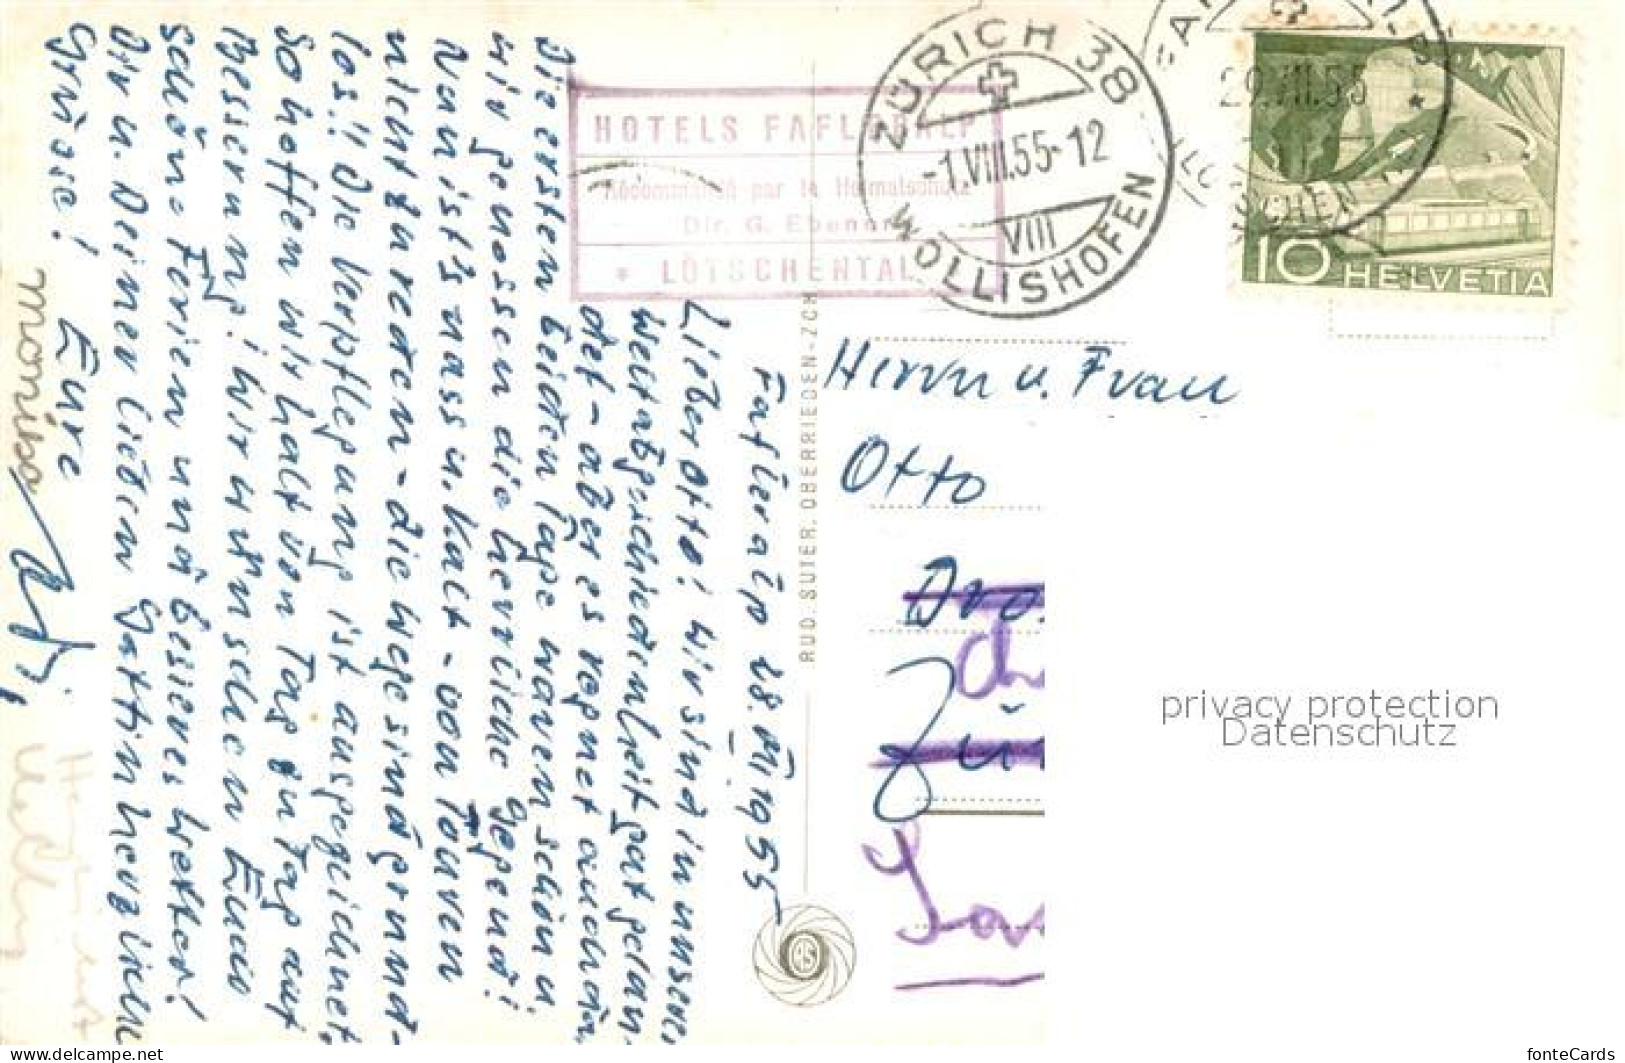 HOTELS FAFLERALP
Recommandé par le Heimatschutz
Dir. G. Ebener
* LÖTSCHENTAL
ZÜRICH 38
-1.VIII.55-12
VIII
WOLLISHOFEN
29.VII.55
10 HELVETIA
Fafleralp 28. VII. 1955
Lieber Otto! Wir sind in unserer
Weltabgeschiedenheit gut gelan-
det - aber es regnet auch da.
Die ersten beiden Tage waren schön u.
wir genossen die herrliche Gegend!
Nun ist's nass u. kalt - von Touren
nicht zu reden - die Wege sind grund-
los!! Die Verpflegung ist ausgezeichnet,
So hoffen wir halt von Tag zu Tag auf
Besserung! Wir wünschen Euch
schöne Ferien und besseres Wetter!
Dir u. Deiner lieben Gattin herzliche
Grüsse! Eure
RUD. SUTER, OBERRIEDEN-ZCH
RS
Herrn u. Frau
Otto
privacy protection
Datenschutz
www.delcampe.net
fonteCards